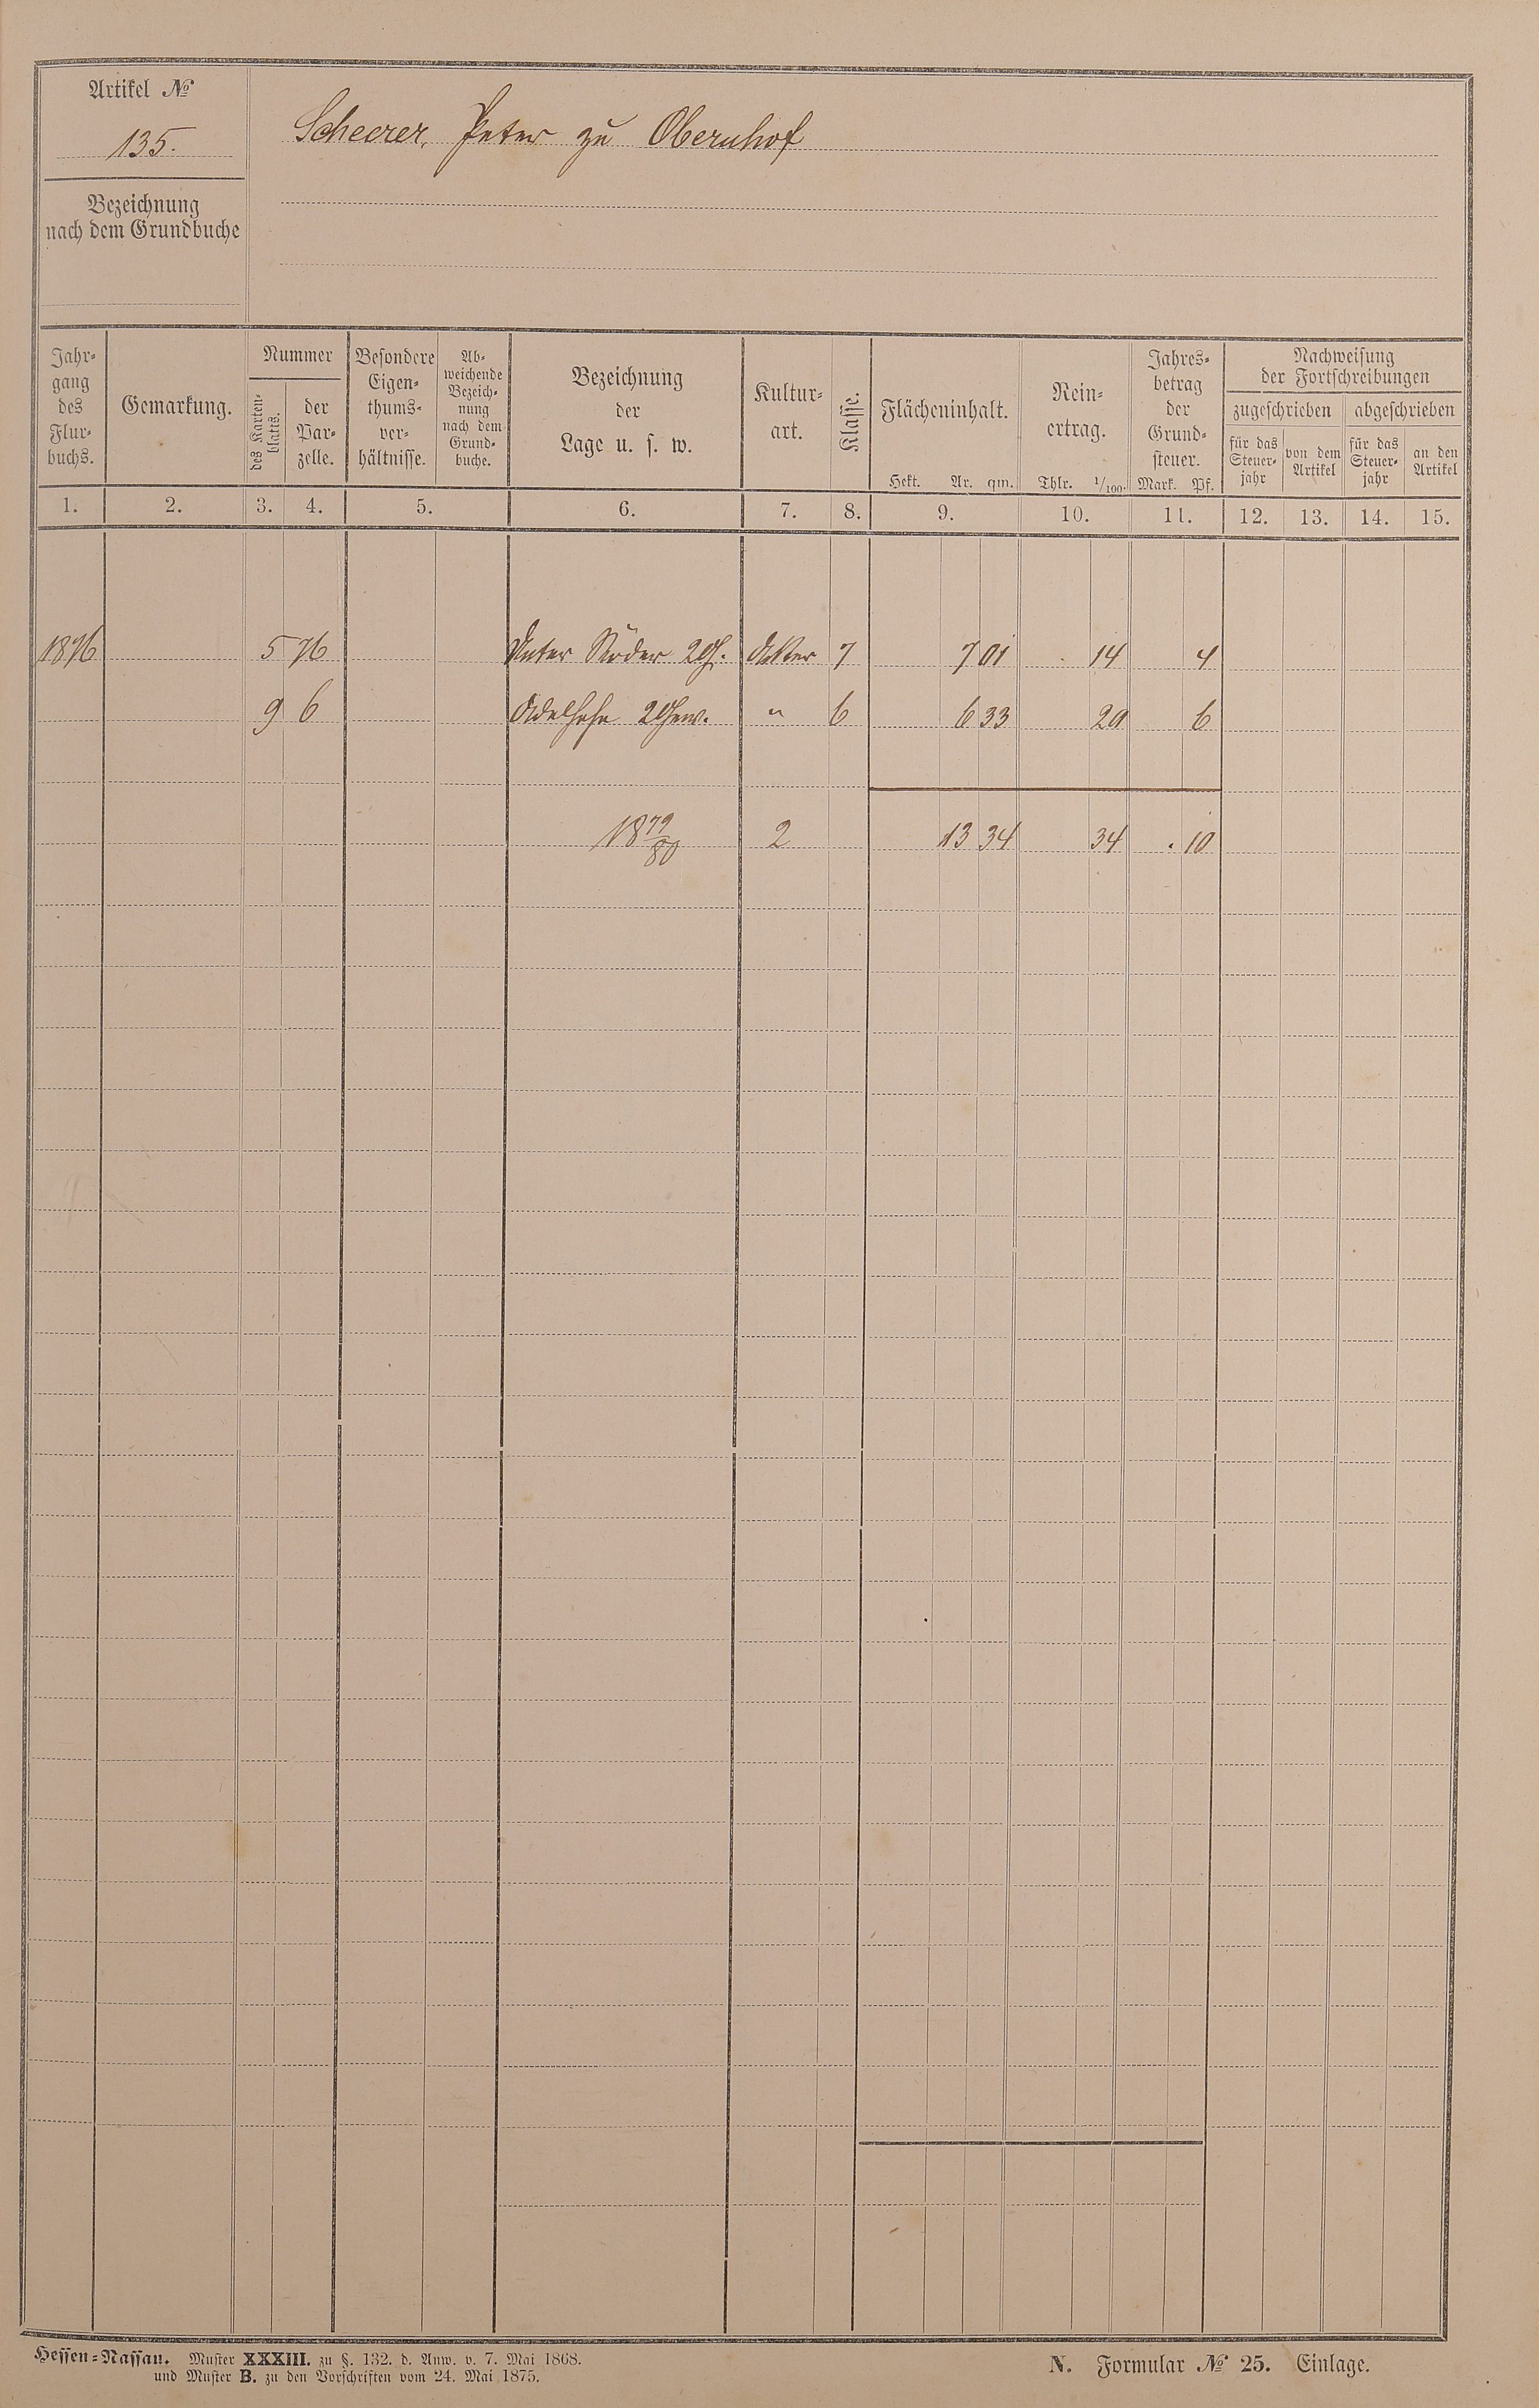 Artikel №
135.
Scheerer, Peter zu Obernhof
Bezeichnung
nach dem Grundbuche
Jahr-
gang
des
Flur-
buchs.
Gemarkung.
Nummer
des Karten-
blatts.
der
Par-
zelle.
Besondere
Eigen-
thums-
ver-
hältnisse.
Ab-
weichende
Bezeich-
nung
nach dem
Grund-
buche.
Bezeichnung
der
Lage u. s. w.
Kultur-
art.
Klasse.
Flächeninhalt.
Hekt. Ar. qm.
Rein-
ertrag.
Thlr. 1/100.
Jahres-
betrag
der
Grund-
steuer.
Mark. Pf.
Nachweisung
der Fortschreibungen
zugeschrieben abgeschrieben
für das
Steuer-
jahr
von dem
Artikel
für das
Steuer-
jahr
an den
Artikel
1. 2. 3. 4. 5. 6. 7. 8. 9. 10. 11. 12. 13. 14. 15.
1876 5 76 Unter Röder 2G. Acker 7 7 01 14 4
9 6 2Gew. " 6 6 33 20 6
1879/80 2 13 34 34 . 10
Hessen-Nassau. Muster XXXIII. zu §. 132. d. Anw. v. 7. Mai 1868.
und Muster B. zu den Vorschriften vom 24. Mai 1875.
N. Formular № 25. Einlage.